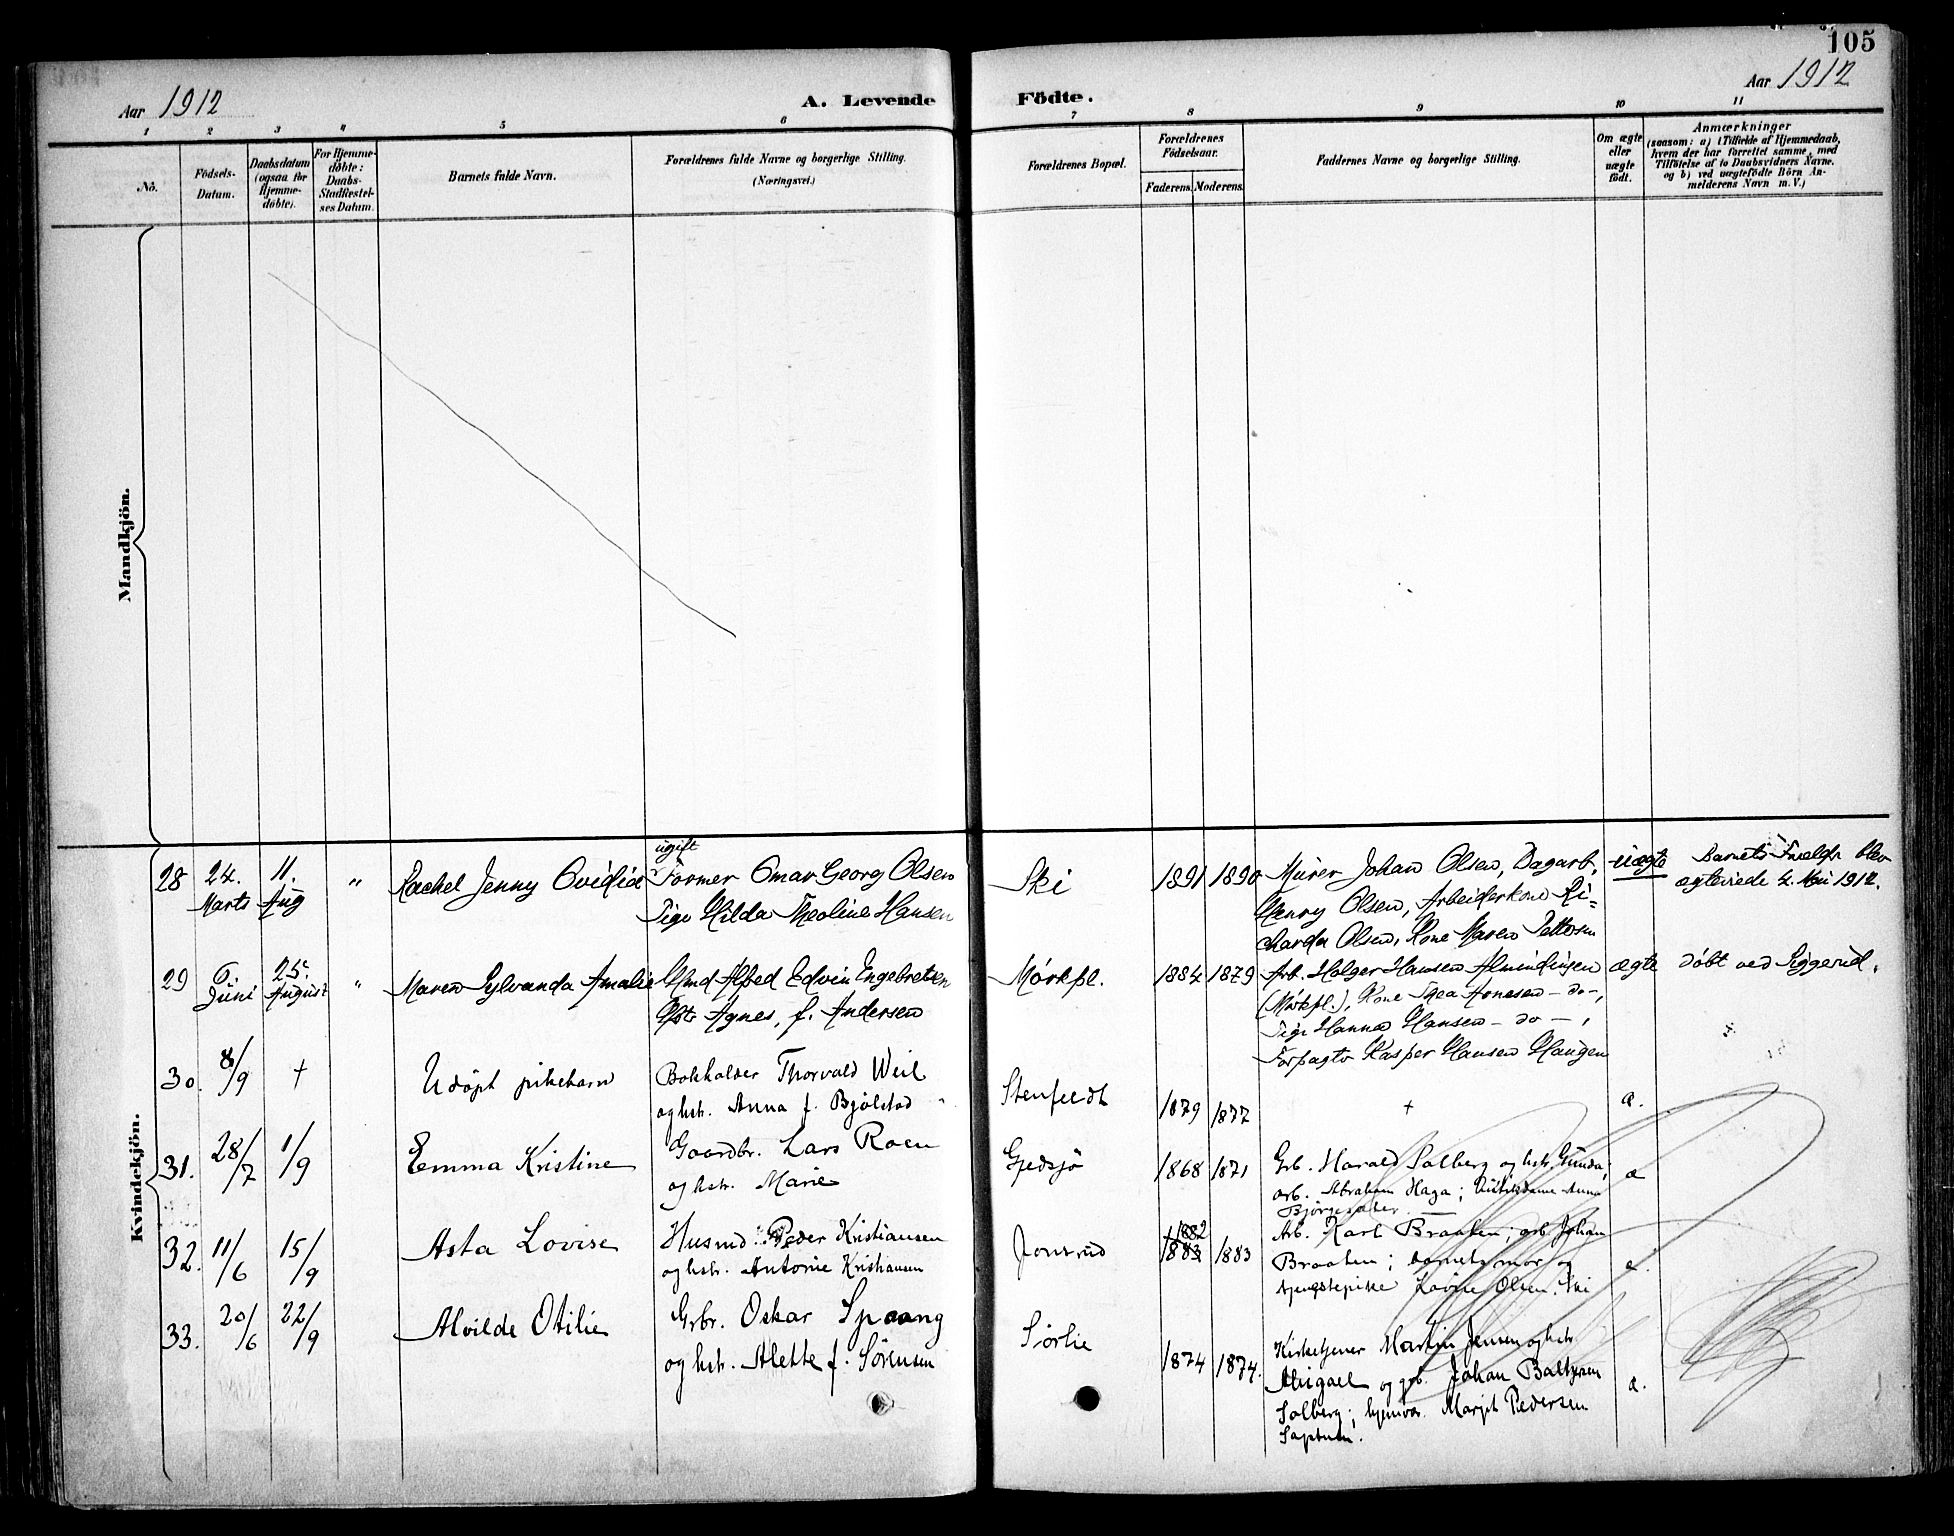 105
Aar 1912
A. Levende Födte.
Aar 1912
1 2 3 4 5 6 7 8 9 10 11
No.
Födsels-
Datum.
Daabsdatum
(ogsaa for
Hjemme-
döbte).
For Hjemme-
döbte:
Daabs-
Stadfæstel-
ses Datum.
Barnets fulde Navn.
Forældrenes fulde Navne og borgerlige Stilling.
(Næringsvei.)
Forældrenes Bopæl.
Forældrenes
Födselsaar.
Faderens. Moderens.
Faddernes Navne og borgerlige Stilling.
Om ægte
eller
uægte
födt.
Anmærkninger
(saasom: a) i Tilfælde af Hjemmedaab,
hvem der har forrettet samme, med
Tilföielse af to Daabsvidners Navne.
og b) ved uægtefödte Börn An-
melderens Navn m. V.)
Mandkjön.
Kvindekjön.
28
24.
Marts
11.
Aug
"
Rachel Jenny Ovidia
ugift
Former Omar Georg Olsen
Pige Hilda Theoline Hansen
Ski
1891 1890
Murer Johan Olsen, Dagarb.
Henry Olsen, Arbeiderkone Ri=
charda Olsen, Kone Maren Pettersen
uægte
Barnets Forældr blev
ægteviede 4. Mai 1912.
29
6.
Juni
25.
August
"
Maren Sylvanda Amalie
Gmd Alfred Edvin Engebretsen
Hstr Agnes, f. Andersen
Mörkpl.
1884 1879
Arb. Holger Hansen Almindingen
(Mörkpl.), Kone Thea Arnesen - do -,
Pige Hanna Hansen - do -,
Forpagter Kasper Hansen Haugen
ægte
döbt ved Siggerud.
30.
8/9
†
Udøpt pikebarn
Bokholder Thorvald Weil
og hstr. Anna f. Bjølstad
Stenfeldt
1879 1877
†
a.
31.
28/7
1/9
Emma Kristine
Gaardbr. Lars Roen
og hstr. Marie
Gjedsjø
1868 1871
Grb. Harald Solberg og hstr. Gunda;
arb. Abraham Haga; Anna
32.
11/6
15/9
Asta Lovise
Husmd. Peder Kristiansen
og hstr. Antonie Kristiansen
Jonsrud
1882
1883 1883
Arb. Karl Braaten; arb. Johan
Braaten; barnets mor og
tjenestepike Olsen. Ski
33.
20/6
22/9
Alvilde Otilie
Grbr. Oskar Spaang
og hstr. Alette f. Sørensen
Sørlie
1874 1874.
Kirketjener Martin Jensen og hstr
Abigael og grb. Johan Baltzersen
Solberg; hjemvær. Margit Pedersen
a.